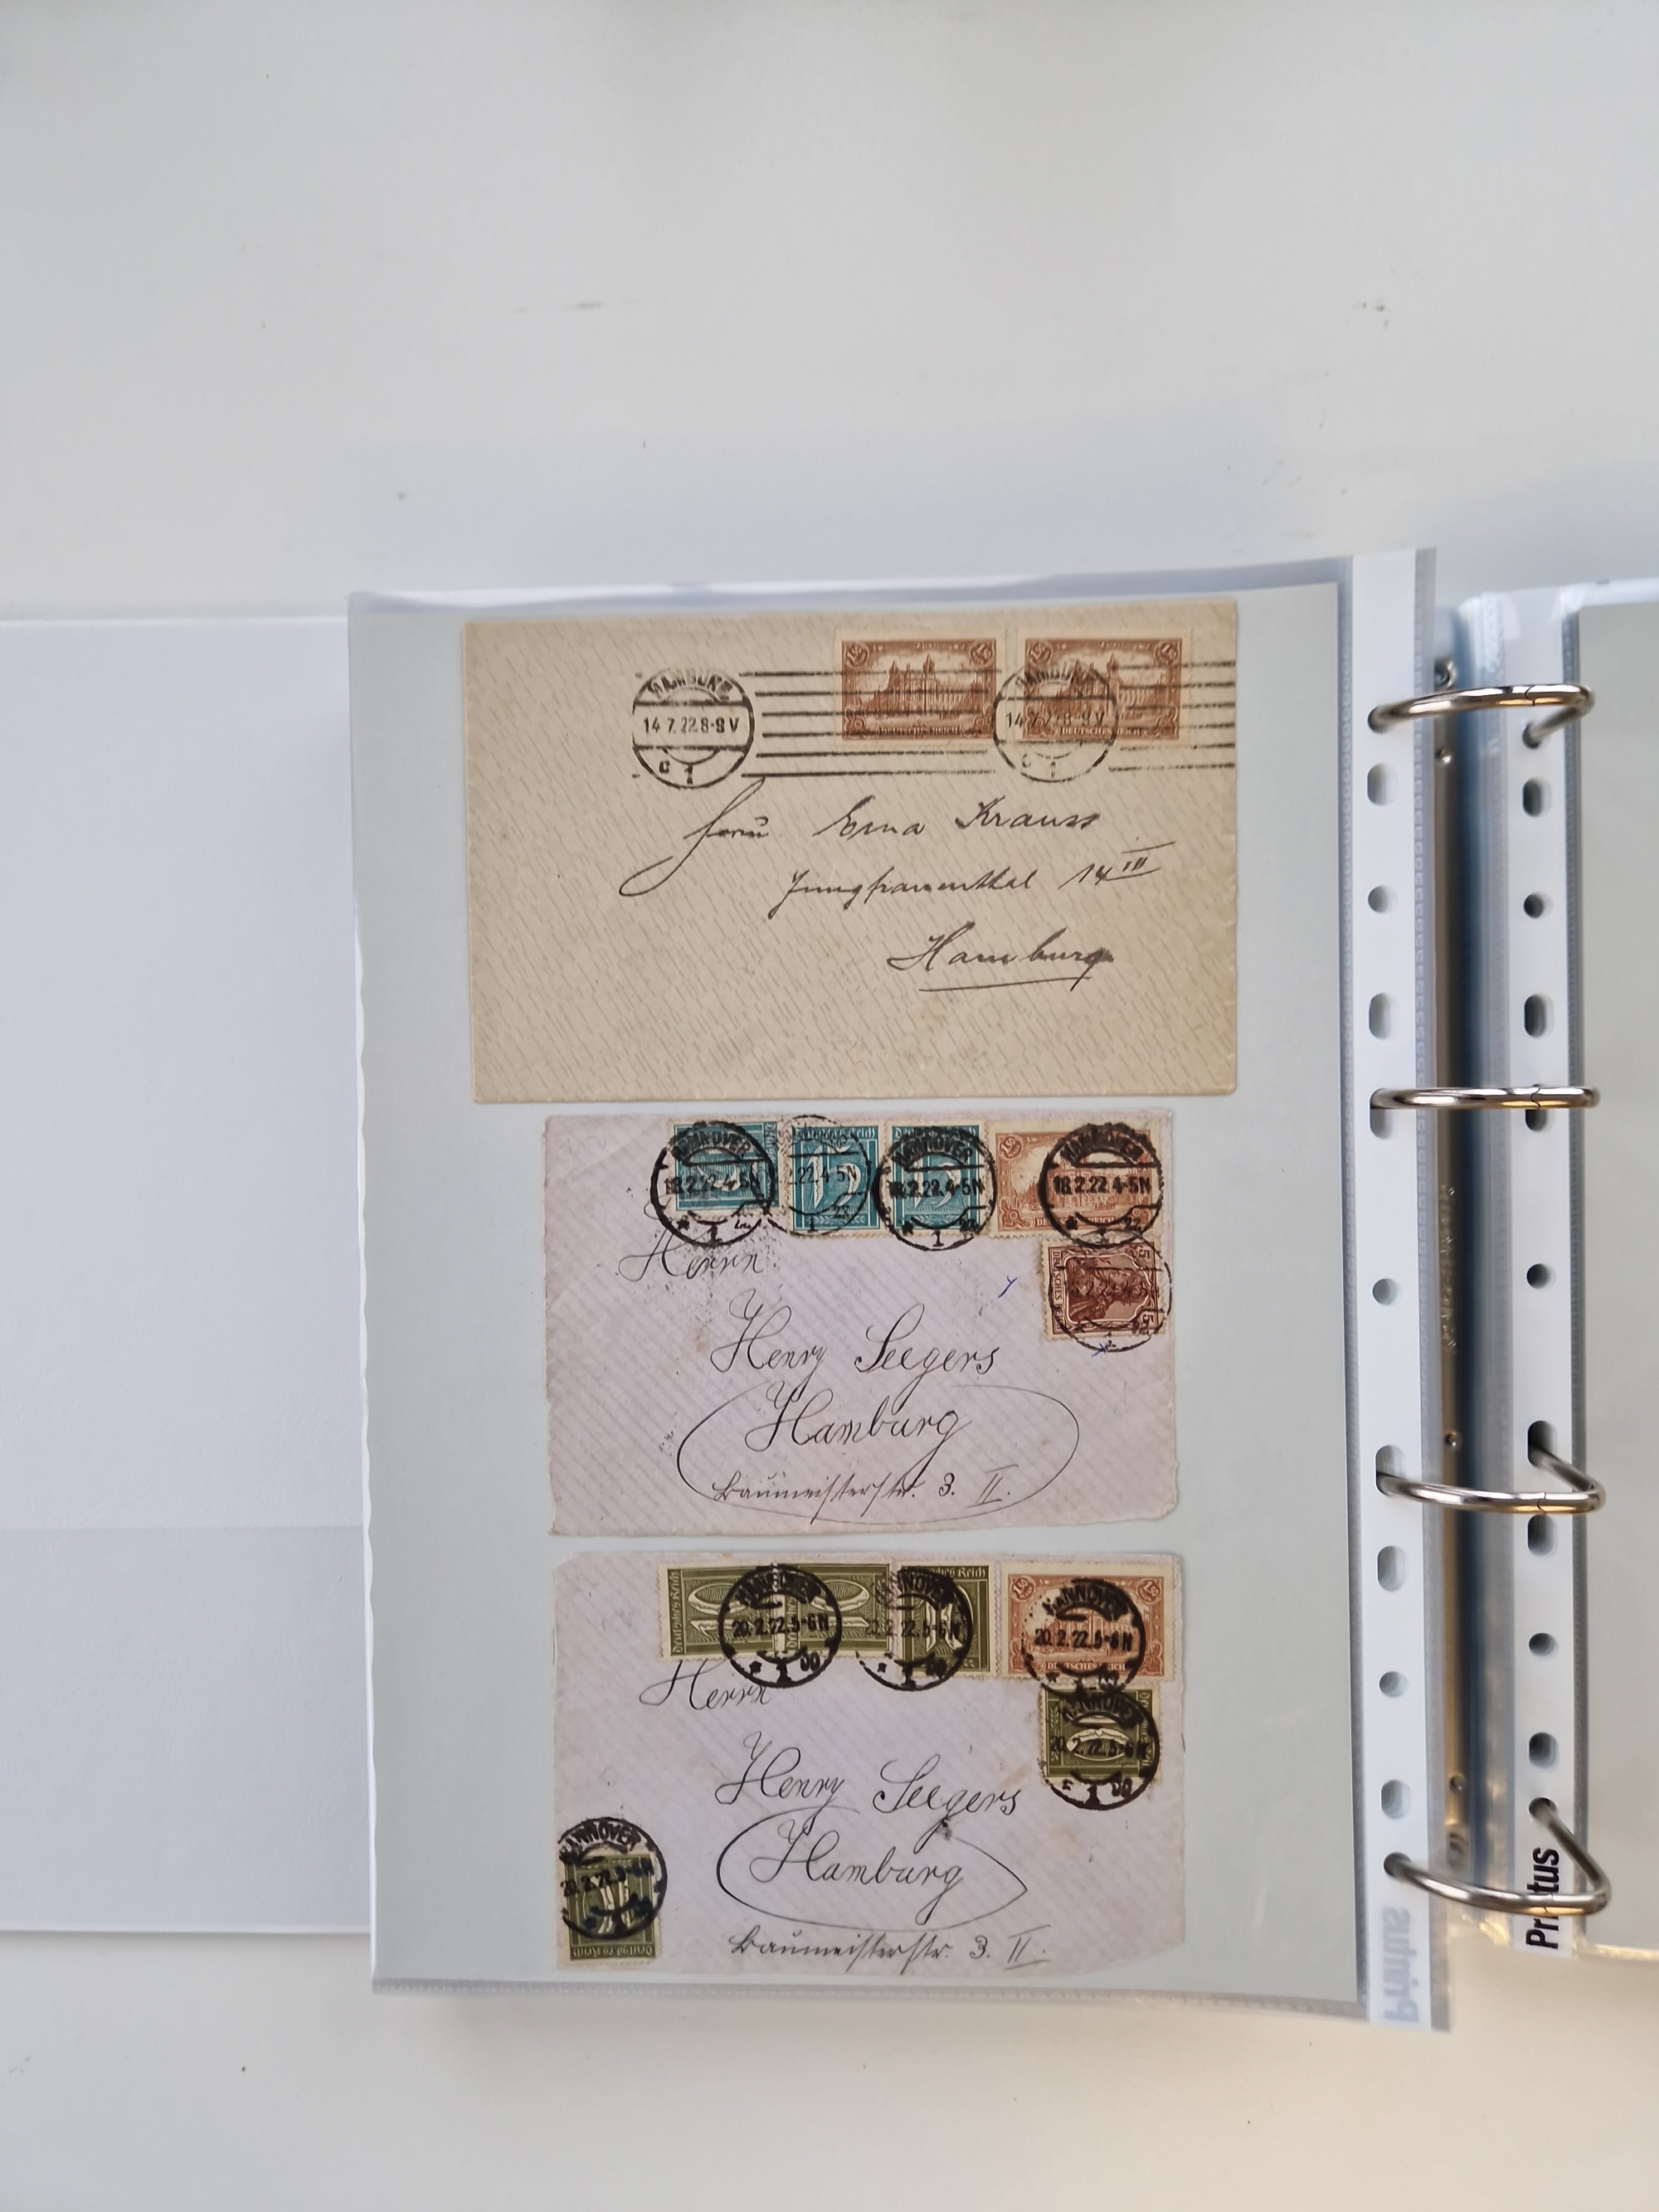 HAMBURG
14.7.22.8-9V
C 1
HAMBURG
14.7.22.8-9V
C 1
1½
1½
DEUTSCHES REICH
1½
1½
DEUTSCHES REICH
Frau Erna Krauss
Jungfrauenthal 14 III
Hamburg
HANNOVER
18.2.22.4-5N
* 1
Deutsches Reich
15
22.4-5N
1
HANNOVER
18.2.22.4-5N
* 1
15
1,50
HANNOVER
18.2.22.4-5N
Herrn
Henry Seegers
Hamburg
Baumeisterstr. 3. II.
Deutsches Reich
10
HANNOVER
20.2.22.5-6N
* 1
HANNOVER
20.2.22.5-6N
* 1
1,50
1,50
DEUTSCHES REICH
HANNOVER
20.2.22.5-6N
HANNOVER
20.2.22.5-6N
1
Herrn
Henry Seegers
Hamburg
Baumeisterstr. 3. II.
HANNOVER
20.2.22.5-6N
Deutsches Reich
Printus
Printus